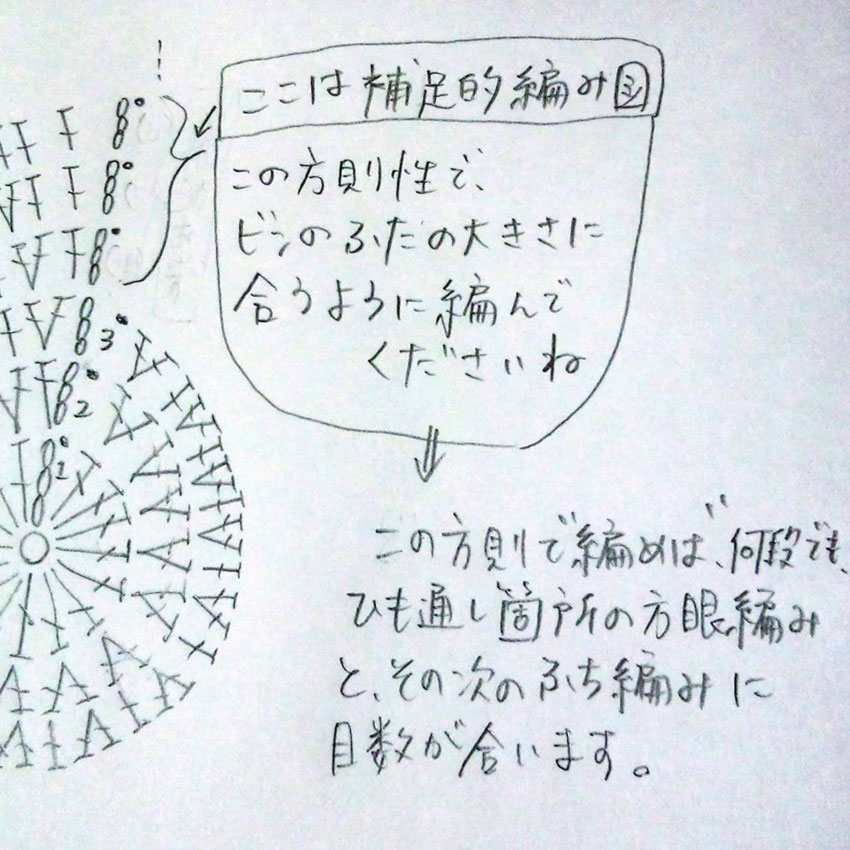 ここは補足的編み図
この方則性で、
ビンのふたの大きさに
合うように編んで
くださいね
この方則で編めば、何段でも、
ひも通し箇所の方眼編み
と、その次のふち編みに
目数が合います。
3
2
1